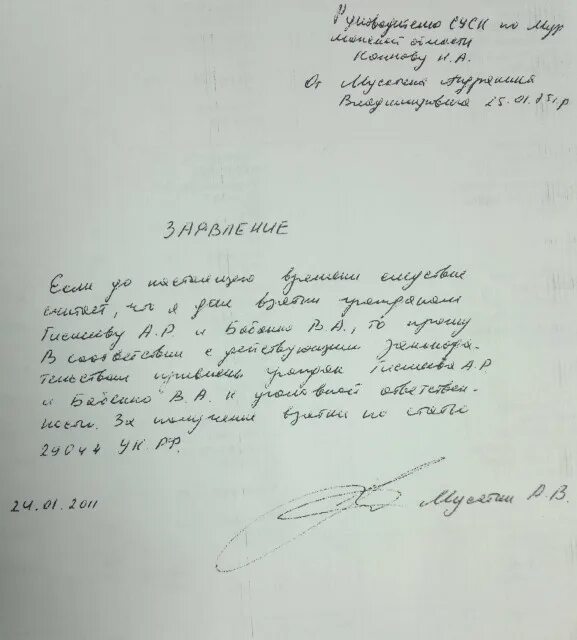 Руководителю СУСК по Мур
манской области
Н.А.
От Мусатина
Владимировича 25.01.85г.р
ЗАЯВЛЕНИЕ
Если до настоящего времени следствие
считает, что я дал взятки гражданам
А.Р. и Бабенко В.А., то прошу
В соответствии с действующим законода
тельством привлечь граждан А.Р
и Бабенко В.А. к уголовной ответствен-
ности. За получение взятки по статье
УК.РФ.
24.01.2011
Мусатин А.В.